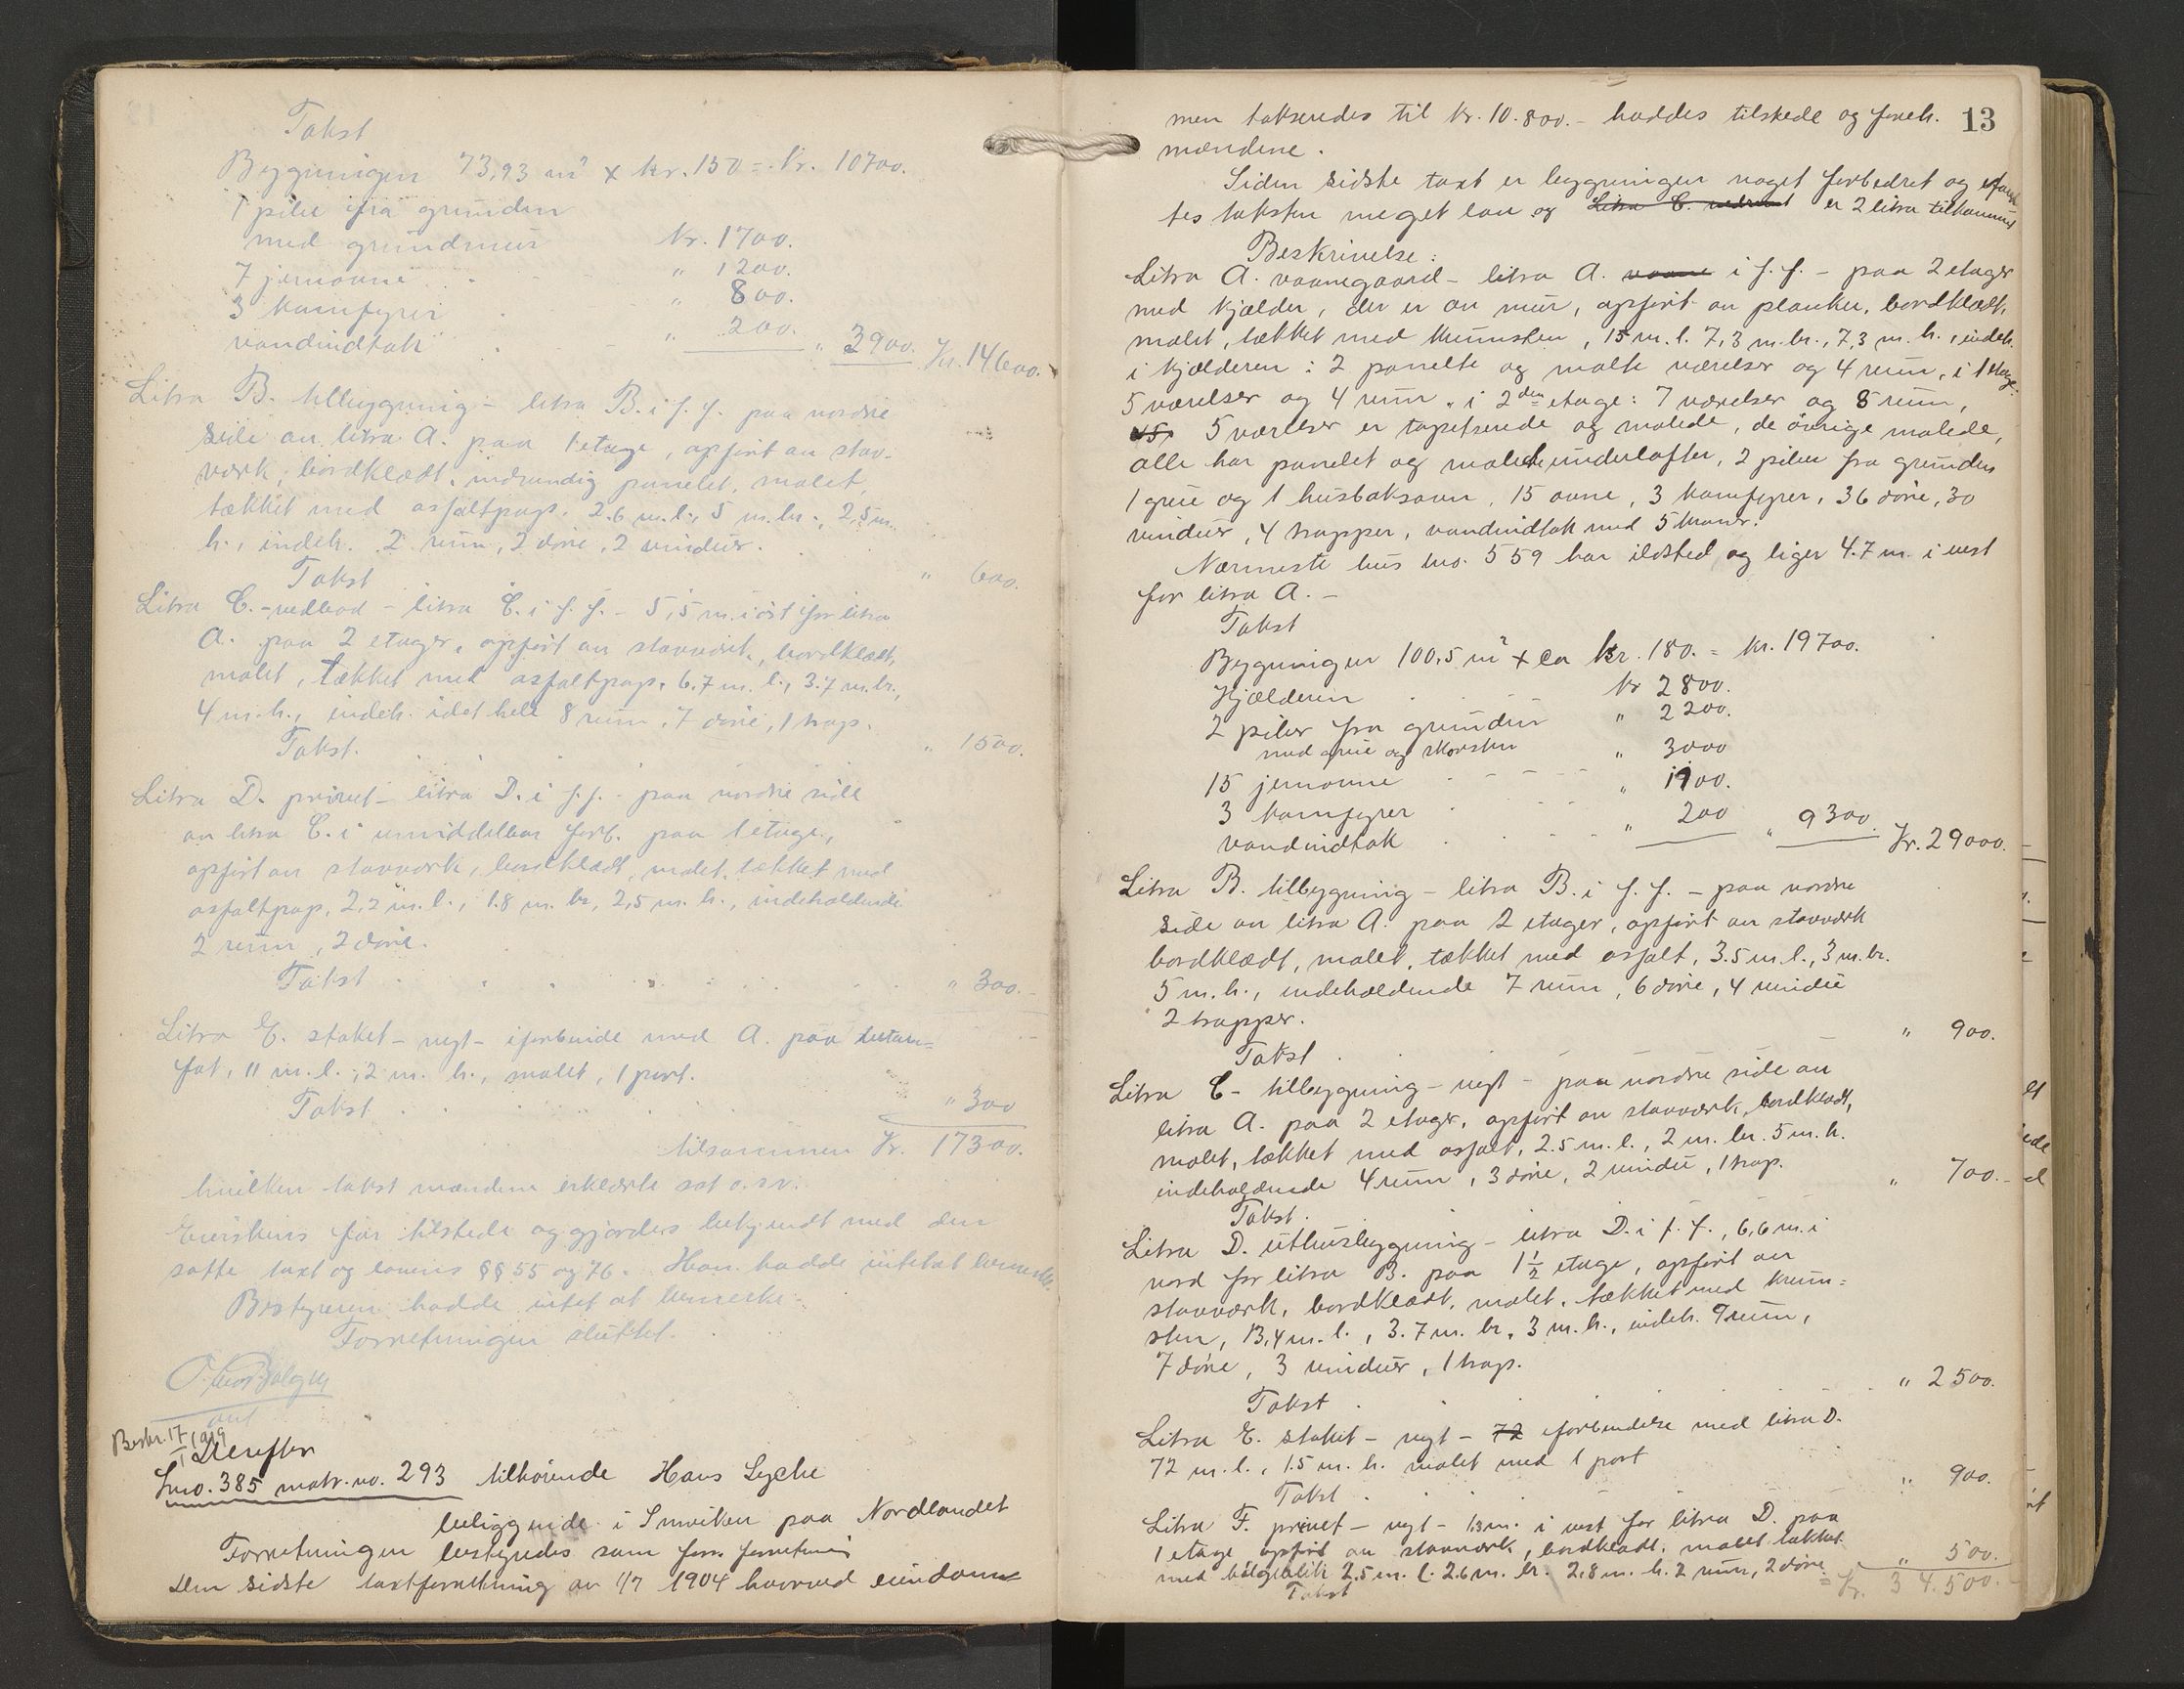 Takst
Bygningen 73,93 m² x kr. 150 = Kr. 10700.
1 pibe fra grunden
med grundmur Kr. 1700.
7 jernovne " 1200.
3 komfyrer " 800.
vandindtak " 200. " 3900. Kr. 14600.
Litra B. tilbygning - litra B. i f. f. paa nordre
side av litra A. paa 1 etage, opført av stav-
værk, bordklædt, indvendig panelet, malet,
tækket med asfaltpap, 2.6 m. l., 5 m. br., 2,5 m.
h., indeh. 2 rum, 2 döre, 2 vinduer.
Takst " 600.
Litra C. - vedbod - litra C. i f. f. - 5,5 m. i öst for litra
A. paa 2 etager, opført av stavværk, bordklædt,
malet, tækket med asfaltpap, 6.7 m. l., 3.7 m. br.,
4 m. h., indeh. idet hele 8 rum, 7 döre, 1 trap.
Takst. " 1500.
Litra D. privet - litra D. i f. f. - paa nordre side
av litra C. i umiddelbar forb. paa 1 etage,
opført av stavværk, bordklædt, malet, tækket med
asfaltpap, 2,2 m. l., 1.8 m. br, 2,5 m. h., indeholdende
2 rum, 2 döre.
Takst " 300.-
Litra E. staket - nyt - iforbinde med A. paa
fot, 11 m. l., 2 m. h., malet, 1 port.
Takst " 300
tilsammen Kr. 17300.
hvilken takst mændene erklærte sat o. s. v.
Eierskens far tilstede og gjordes bekjendt med den
satte taxt og lovens §§ 55 og 76. Han hadde intet at bemerke.
Bestyreren hadde intet at bemerke.
Forretningen sluttet.
Beskr. 17/1 1919
Derefter
Lno. 385 matr. no. 293 tilhörende Hans Lyche
beliggende i paa Nordlandet
Forretningen bestyredes som forr. forretning
Den sidste taxtforretning av 1/7 1904 hvorved eiendom-
13
men takseredes til kr. 10.800.- haddes tilstede og foreh.
mændene.
Siden sidste taxt er bygningen noget forbedret og
tes taksten meget lav og Litra C. er 2 litra tilkommet
Beskrivelse:
Litra A. vaanegaard - litra A. vaane i f. f. - paa 2 etager
med kjælder, der er av mur, opført av planker, bordklædt,
malet, tækket med krumsten, 15 m. l. 7,3 m. br., 7,3 m. h., indeh.
i kjælderen: 2 panelte og malte værelser og 4 rum, i 1 etage:
5 værelser og 4 rum, i 2den etage: 7 værelser og 8 rum,
5 værelser er tapetserede og malede, de övrige malede,
alle har panelet og malede underlofter, 2 piber fra grunden
1 grue og 1 husbaksovn, 15 ovne, 3 komfyrer, 36 döre, 30
vinduer, 4 trapper, vandindtak med 5 kraner.
Nærmeste hus lno. 559 har ildsted og liger 4.7 m. i vest
for litra A. -
Takst
Bygningen 100,5 m² x ca kr. 180. = kr. 19700.
Kjælderen kr 2800.
2 piber fra grunden " 2200.
med grue og skorsten
15 jernovne " 3000
3 komfyrer " 1100.
vandindtak " 200 " 9300. Kr. 29000.-
Litra B. tilbygning - litra B. i f. f. - paa nordre
side av litra A. paa 2 etager, opført av stavværk
bordklædt, malet, tækket med asfalt, 3.5 m. l., 3 m. br.
5 m. h., indeholdende 7 rum, 6 döre, 4 vindue
2 trapper.
Takst " 900.
Litra C - tilbygning - nyt - paa nordre side av
litra A. paa 2 etager, opført av stavværk, bordklædt,
malet, tækket med asfalt, 2.5 m. l., 2 m. br. 5 m. h.
indeholdende 4 rum, 3 döre, 2 vindue, 1 trap.
Takst. " 700.-
Litra D. uthusbygning - litra D. i f. f., 6,6 m. i
nord for litra B. paa 1½ etage, opført av
stavværk, bordklædt, malet, tækket med krum=
sten, 13,4 m. l., 3.7 m. br., 3 m. h., indeh. 9 rum,
7 döre, 3 vinduer, 1 trap.
Takst " 2500.
Litra E. staket - nyt - 72 iforbindelse med litra D.
72 m. l., 1.5 m. h. malet med 1 port
Takst " 900.
Litra F. privet - nyt - 1.3 m. i vest for litra D. paa
1 etage opført av stavværk, bordklædt, malet tækket
med bölgeblik 2,5 m. l. 2.6 m. br. 2.8 m. h. 2 rum, 2 döre.
Takst " 500.
= Kr. 34.500.-